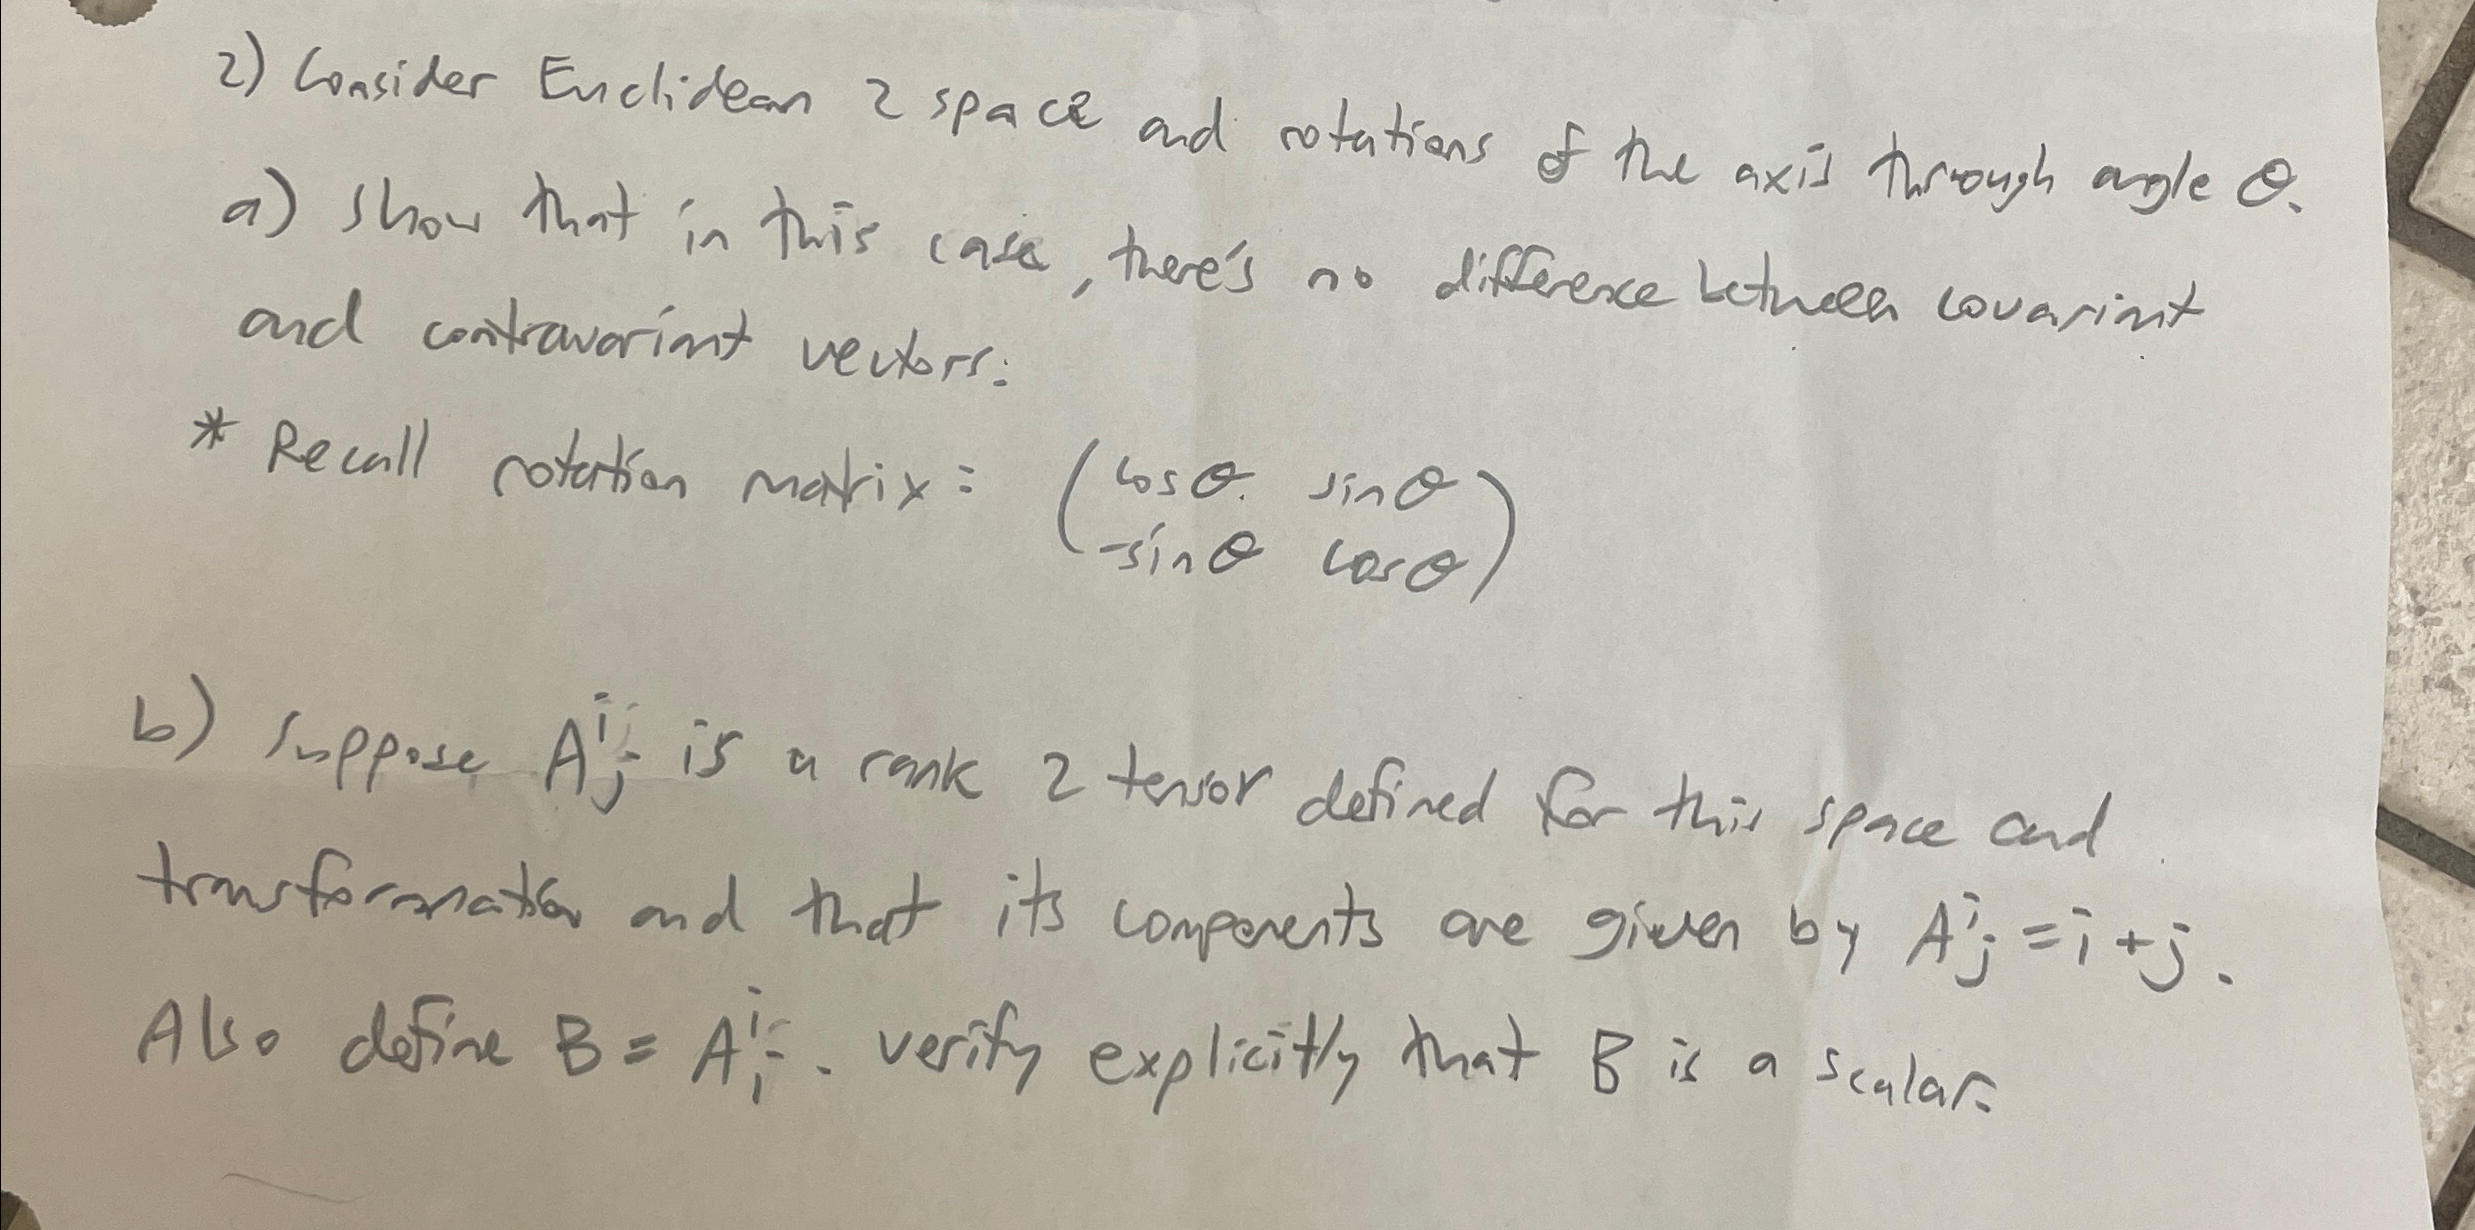 2) Consider Euclidean 2 space and rotations of the axis through angle θ.
a) Show that in this case, there's no difference between covariant
and contravariant vectors.
* Recall rotation matrix = ( cosθ sinθ
-sinθ cosθ )
b) Suppose Aⁱⱼ is a rank 2 tensor defined for this space and
transformation and that its components are given by Aⁱⱼ = i + j.
Also define B = Aⁱᵢ. verify explicitly that B is a scalar.